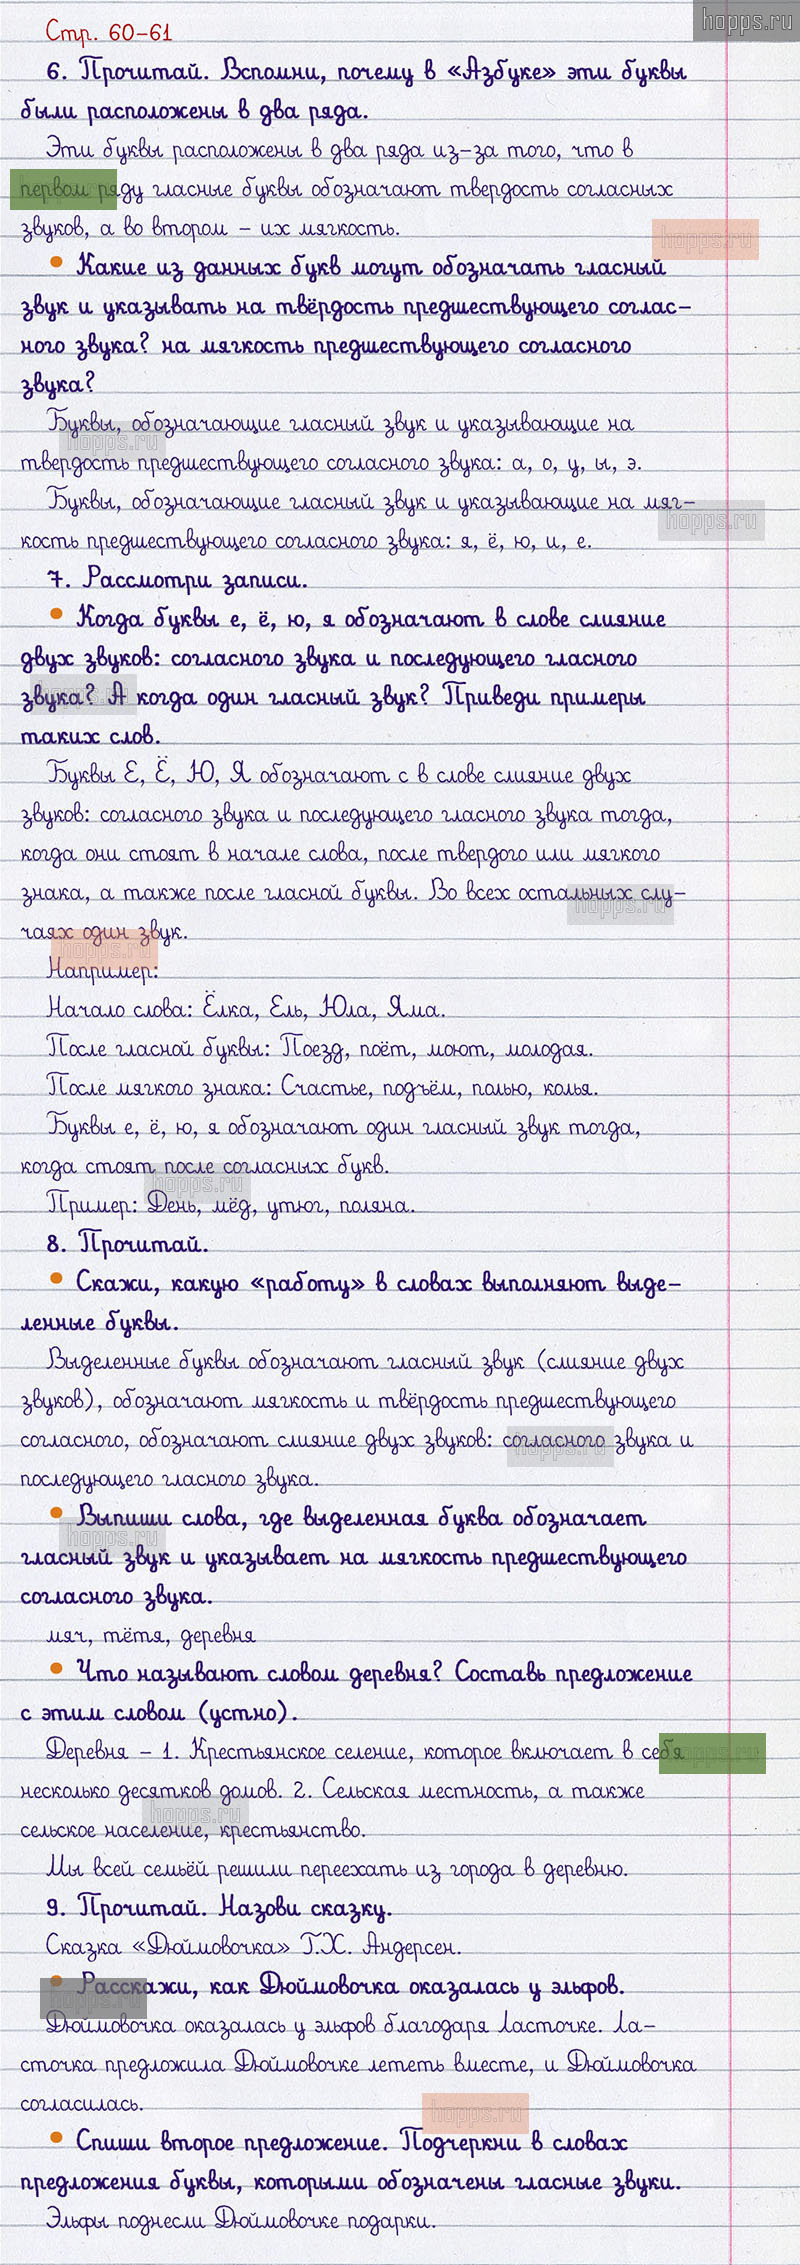 hopps.ru
Стр. 60-61
6. Прочитай. Вспомни, почему в «Азбуке» эти буквы
были расположены в два ряда.
Эти буквы расположены в два ряда из-за того, что в
первом ряду гласные буквы обозначают твердость согласных
звуков, а во втором - их мягкость.
hopps.ru
• Какие из данных букв могут обозначать гласный
звук и указывать на твёрдость предшествующего соглас-
ного звука? на мягкость предшествующего согласного
звука?
Буквы, обозначающие гласный звук и указывающие на
hopps.ru
твердость предшествующего согласного звука: а, о, у, ы, э.
Буквы, обозначающие гласный звук и указывающие на мяг-
hopps.ru
кость предшествующего согласного звука: я, ё, ю, и, е.
7. Рассмотри записи.
• Когда буквы е, ё, ю, я обозначают в слове слияние
двух звуков: согласного звука и последующего гласного
звука? А когда один гласный звук? Приведи примеры
hopps.ru
таких слов.
Буквы Е, Ё, Ю, Я обозначают с в слове слияние двух
звуков: согласного звука и последующего гласного звука тогда,
когда они стоят в начале слова, после твердого или мягкого
знака, а также после гласной буквы. Во всех остальных слу-
hopps.ru
чаях один звук.
hopps.ru
Например:
Начало слова: Ёлка, Ель, Юла, Яма.
После гласной буквы: Поезд, поёт, моют, молодая.
После мягкого знака: Счастье, подъём, полью, колья.
Буквы е, ё, ю, я обозначают один гласный звук тогда,
когда стоят после согласных букв.
hopps.ru
Пример: День, мёд, утюг, поляна.
8. Прочитай.
• Скажи, какую «работу» в словах выполняют выде-
ленные буквы.
Выделенные буквы обозначают гласный звук (слияние двух
звуков), обозначают мягкость и твёрдость предшествующего
согласного, обозначают слияние двух звуков: согласного звука и
hopps.ru
последующего гласного звука.
• Выпиши слова, где выделенная буква обозначает
hopps.ru
гласный звук и указывает на мягкость предшествующего
согласного звука.
мяч, тётя, деревня
• Что называют словом деревня? Составь предложение
с этим словом (устно).
Деревня - 1. Крестьянское селение, которое включает в себя
hopps.ru
несколько десятков домов. 2. Сельская местность, а также
hopps.ru
сельское население, крестьянство.
Мы всей семьёй решили переехать из города в деревню.
9. Прочитай. Назови сказку.
Сказка «Дюймовочка» Г.Х. Андерсен.
• Расскажи, как Дюймовочка оказалась у эльфов.
hopps.ru
Дюймовочка оказалась у эльфов благодаря Ласточке. Ла-
сточка предложила Дюймовочке лететь вместе, и Дюймовочка
согласилась.
hopps.ru
• Спиши второе предложение. Подчеркни в словах
предложения буквы, которыми обозначены гласные звуки.
Эльфы поднесли Дюймовочке подарки.